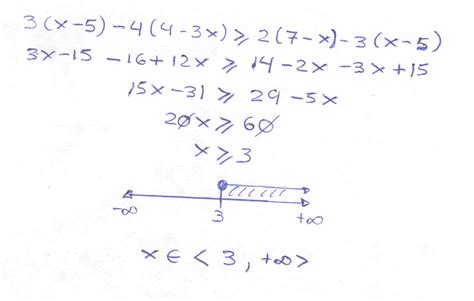 3(x-5)-4(4-3x)⩾2(7-x)-3(x-5)
3x-15 -16+12x ⩾ 14-2x -3x+15
15x-31⩾ 29-5x
20x⩾60
x⩾3
-∞ 3 +∞
x∈<3, +∞>